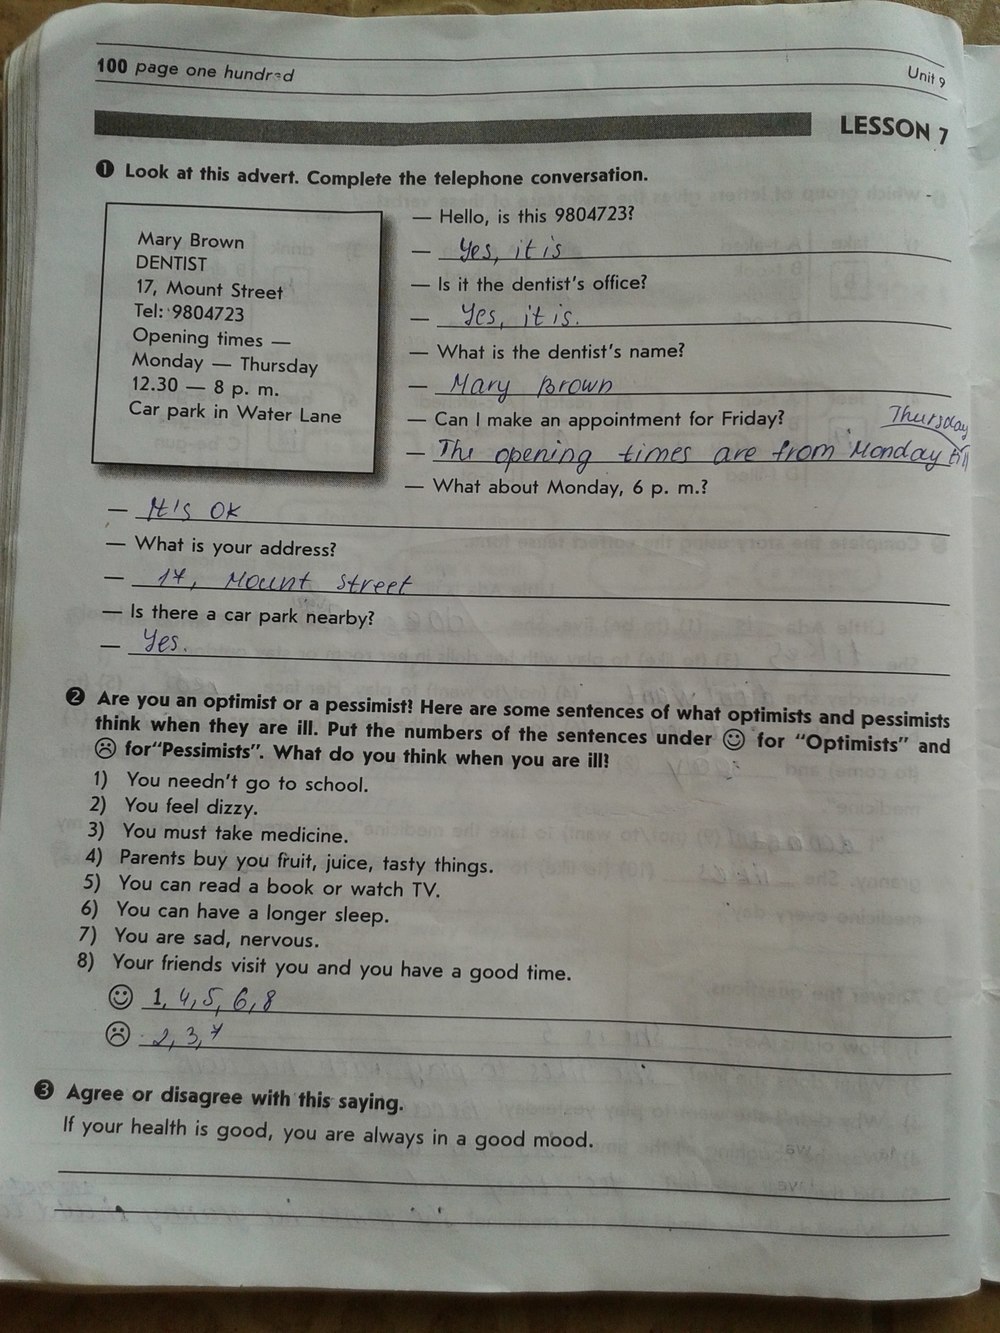 100 page one hundred
Unit 9
LESSON 7
1 Look at this advert. Complete the telephone conversation.
Mary Brown
DENTIST
17, Mount Street
Tel: 9804723
Opening times —
Monday — Thursday
12.30 — 8 p. m.
Car park in Water Lane
— Hello, is this 9804723?
— Yes, it is
— Is it the dentist's office?
— Yes, it is.
— What is the dentist's name?
— Mary Brown
— Can I make an appointment for Friday?
Thursday
— The opening times are from Monday till
— What about Monday, 6 p. m.?
— It's OK
— What is your address?
— 17, Mount Street
— Is there a car park nearby?
— Yes.
2 Are you an optimist or a pessimist? Here are some sentences of what optimists and pessimists
think when they are ill. Put the numbers of the sentences under ☺ for "Optimists" and
☹ for"Pessimists". What do you think when you are ill?
1) You needn't go to school.
2) You feel dizzy.
3) You must take medicine.
4) Parents buy you fruit, juice, tasty things.
5) You can read a book or watch TV.
6) You can have a longer sleep.
7) You are sad, nervous.
8) Your friends visit you and you have a good time.
☺ 1, 4, 5, 6, 8
☹ 2, 3, 7
3 Agree or disagree with this saying.
If your health is good, you are always in a good mood.